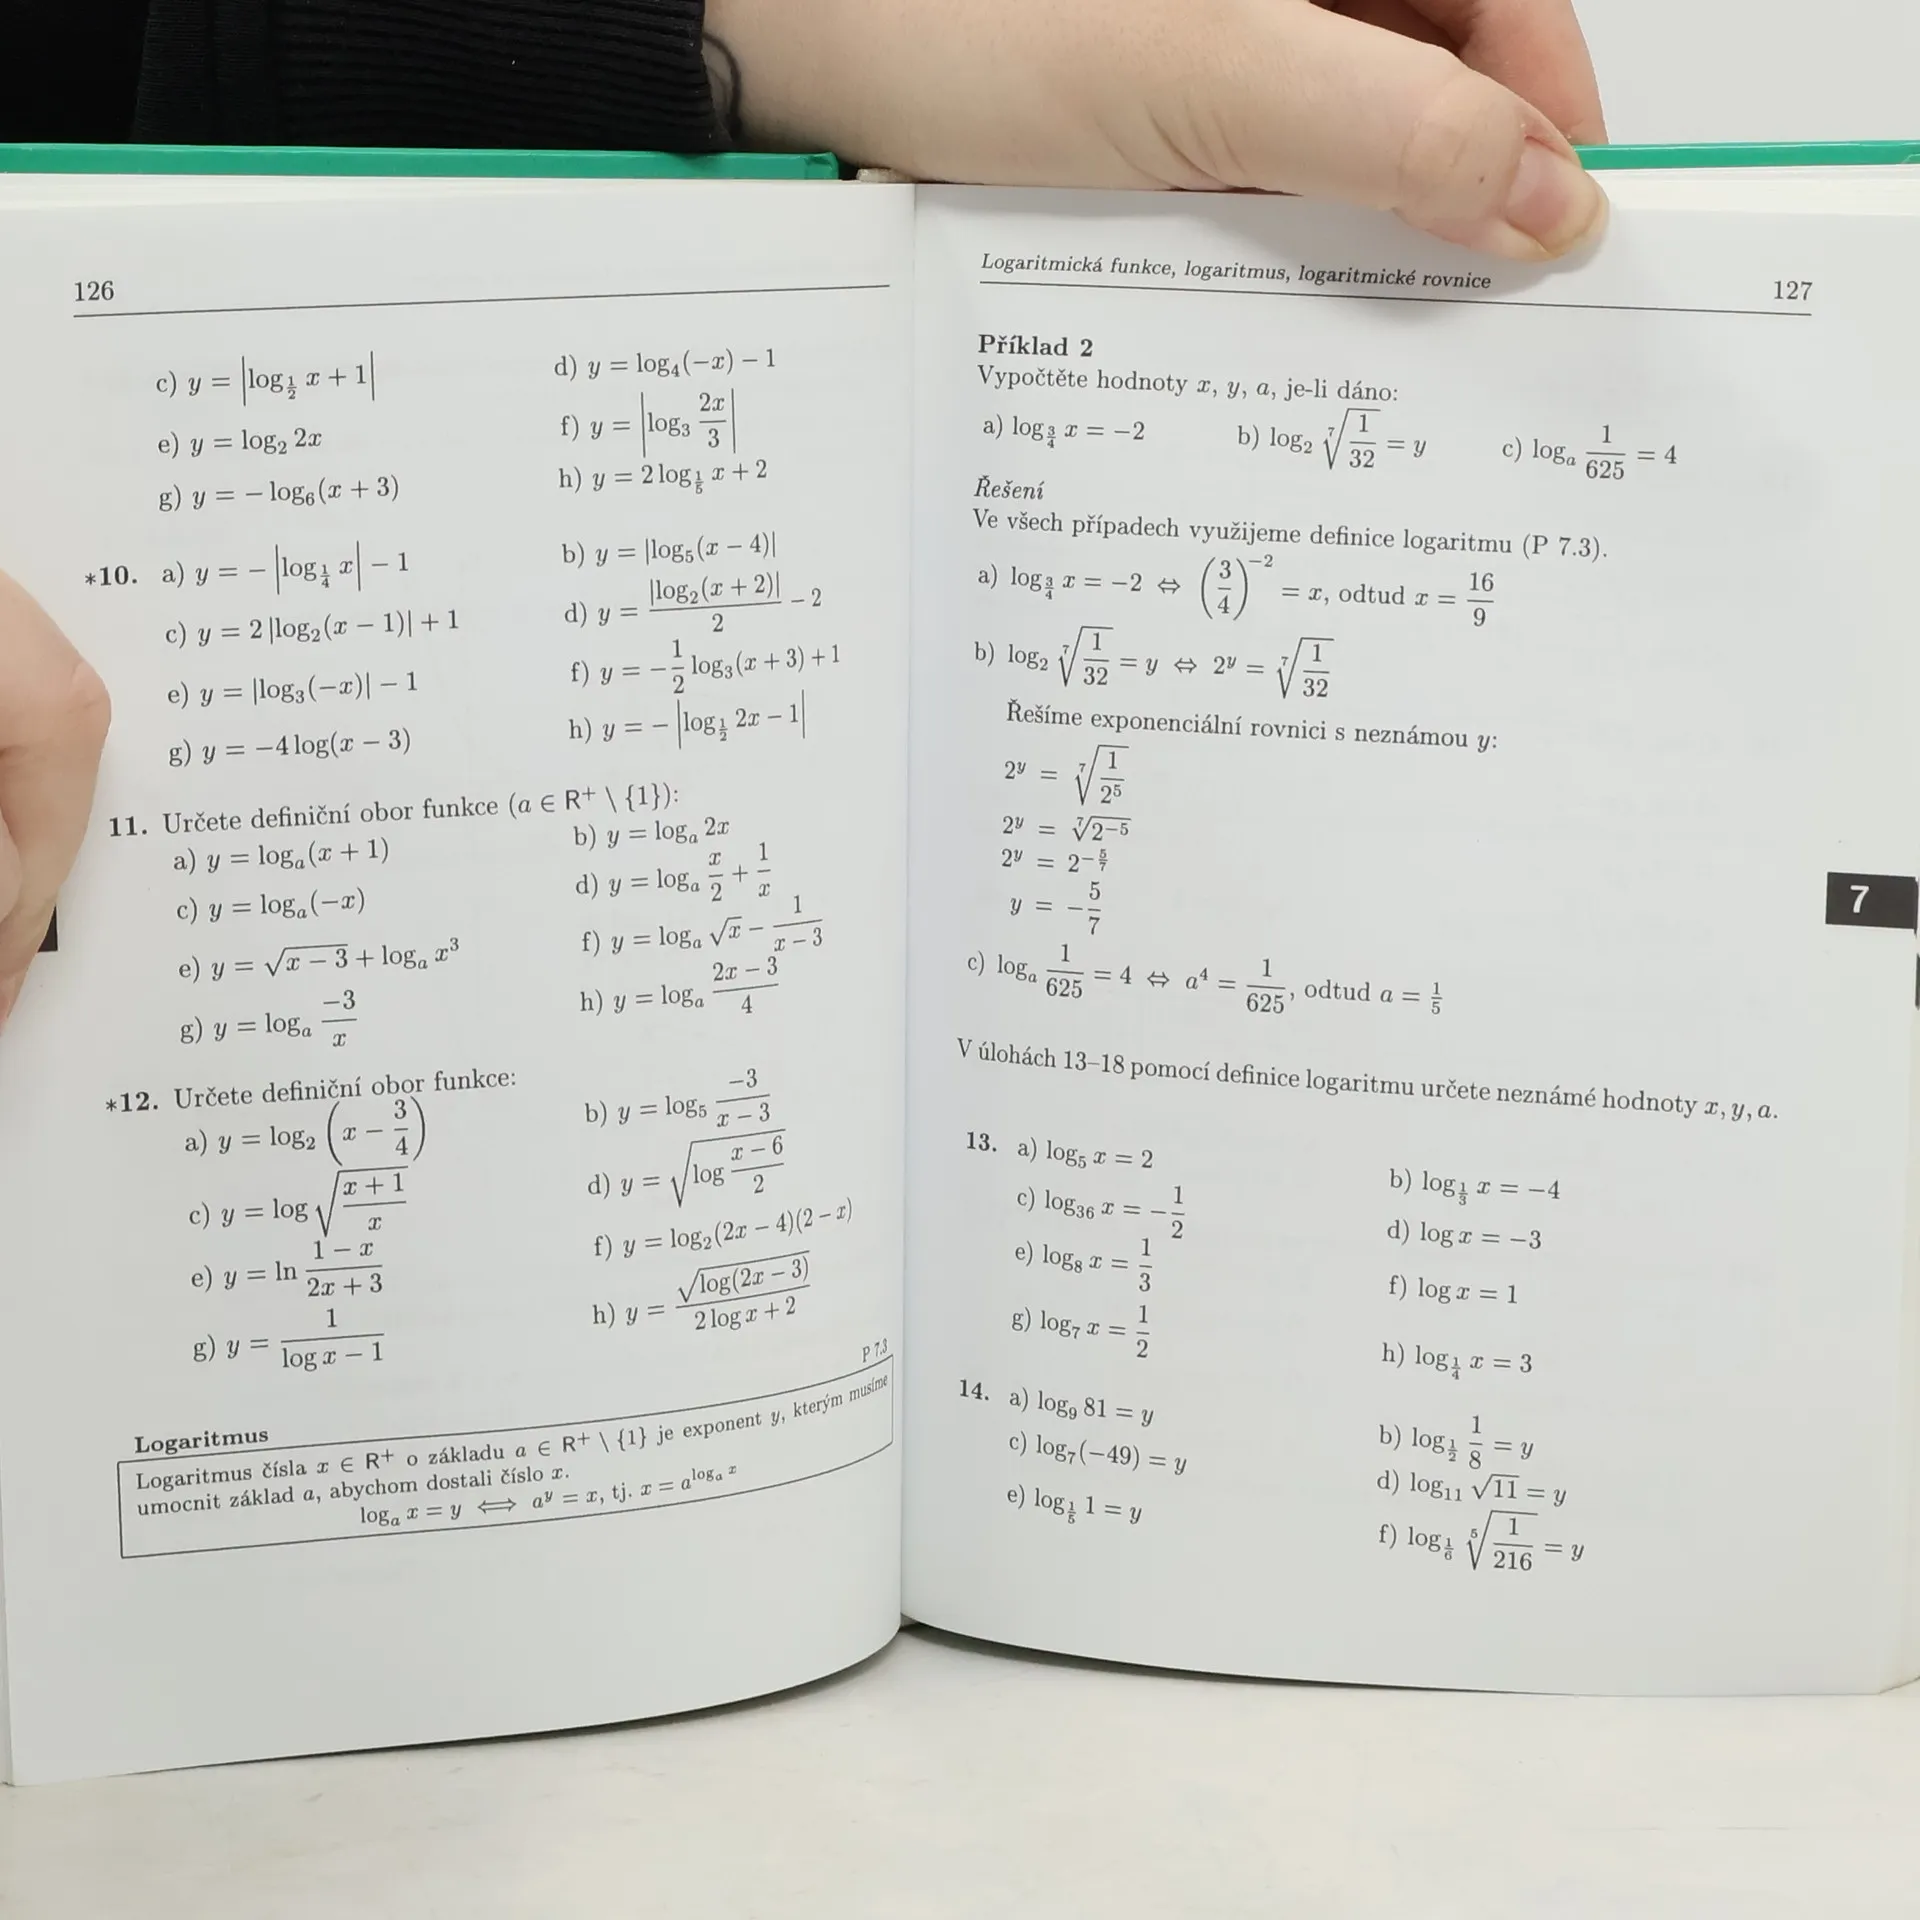 126
c) y = |log_{1/2} x + 1|
d) y = log₄(−x) − 1
e) y = log₂ 2x
f) y = |log₃ 2x/3|
g) y = − log₆(x + 3)
h) y = 2 log_{1/5} x + 2
*10. a) y = − |log_{1/4} x| − 1
b) y = |log₅(x − 4)|
c) y = 2 |log₂(x − 1)| + 1
d) y = |log₂(x + 2)|/2 − 2
e) y = |log₃(−x)| − 1
f) y = −1/2 log₃(x + 3) + 1
g) y = −4 log(x − 3)
h) y = − |log_{1/2} 2x − 1|
11. Určete definiční obor funkce (a ∈ R⁺ \ {1}):
a) y = logₐ(x + 1)
b) y = logₐ 2x
c) y = logₐ(−x)
d) y = logₐ x/2 + 1/x
e) y = √(x − 3) + logₐ x³
f) y = logₐ √x − 1/(x − 3)
g) y = logₐ −3/x
h) y = logₐ (2x − 3)/4
*12. Určete definiční obor funkce:
a) y = log₂ (x − 3/4)
b) y = log₅ −3/(x − 3)
c) y = log √((x + 1)/x)
d) y = √(log (x − 6)/2)
e) y = ln (1 − x)/(2x + 3)
f) y = log₂(2x − 4)(2 − x)
g) y = 1/(log x − 1)
h) y = √(log(2x − 3))/(2 log x + 2)
P 7.3
Logaritmus
Logaritmus čísla x ∈ R⁺ o základu a ∈ R⁺ \ {1} je exponent y, kterým musíme
umocnit základ a, abychom dostali číslo x.
logₐ x = y ⟺ a^y = x, tj. x = a^{logₐ x}
Logaritmická funkce, logaritmus, logaritmické rovnice
127
Příklad 2
Vypočtěte hodnoty x, y, a, je-li dáno:
a) log_{3/4} x = −2 b) log₂ ⁷√(1/32) = y c) logₐ 1/625 = 4
Řešení
Ve všech případech využijeme definice logaritmu (P 7.3).
a) log_{3/4} x = −2 ⇔ (3/4)^{−2} = x, odtud x = 16/9
b) log₂ ⁷√(1/32) = y ⇔ 2^y = ⁷√(1/32)
Řešíme exponenciální rovnici s neznámou y:
2^y = ⁷√(1/2⁵)
2^y = ⁷√(2^{−5})
2^y = 2^{−5/7}
y = −5/7
c) logₐ 1/625 = 4 ⇔ a⁴ = 1/625, odtud a = 1/5
7
V úlohách 13–18 pomocí definice logaritmu určete neznámé hodnoty x, y, a.
13. a) log₅ x = 2
b) log_{1/3} x = −4
c) log₃₆ x = −1/2
d) log x = −3
e) log₈ x = 1/3
f) log x = 1
g) log₇ x = 1/2
h) log_{1/4} x = 3
14. a) log₉ 81 = y
b) log_{1/2} 1/8 = y
c) log₇(−49) = y
d) log₁₁ √11 = y
e) log_{1/5} 1 = y
f) log_{1/6} ⁵√(1/216) = y